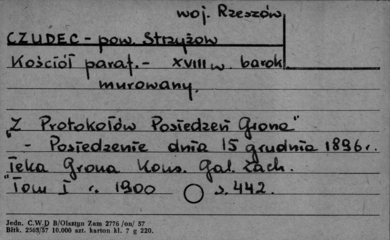 woj. Rzeszów
CZUDEC - pow. Strzyżow
Kościół paraf. - XVIII w. barok
murowany.
"Z Protokołów Posiedzeń Grona"
- Posiedzenie dnia 15 grudnia 1896 r.
Teka Grona Kons. Gal. Zach.
"Tom I r. 1900 s. 442.
Jedn. C.W.D B/Olsztyn Zam 2776 /on/ 57
Bltk. 2563/57 10.000 szt. karton kl. 7 g 220.